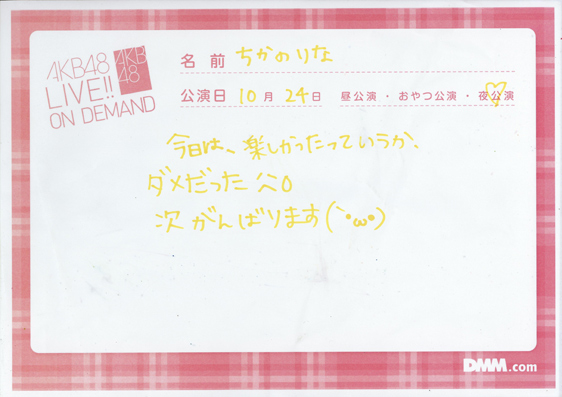 AKB48
LIVE!!
ON DEMAND
AKB
48
名前 ちかのりな
公演日 10月24日 昼公演・おやつ公演・夜公演
今日は、楽しかったっていうか、
ダメだった
次がんばります(`•ω•)
DMM.com